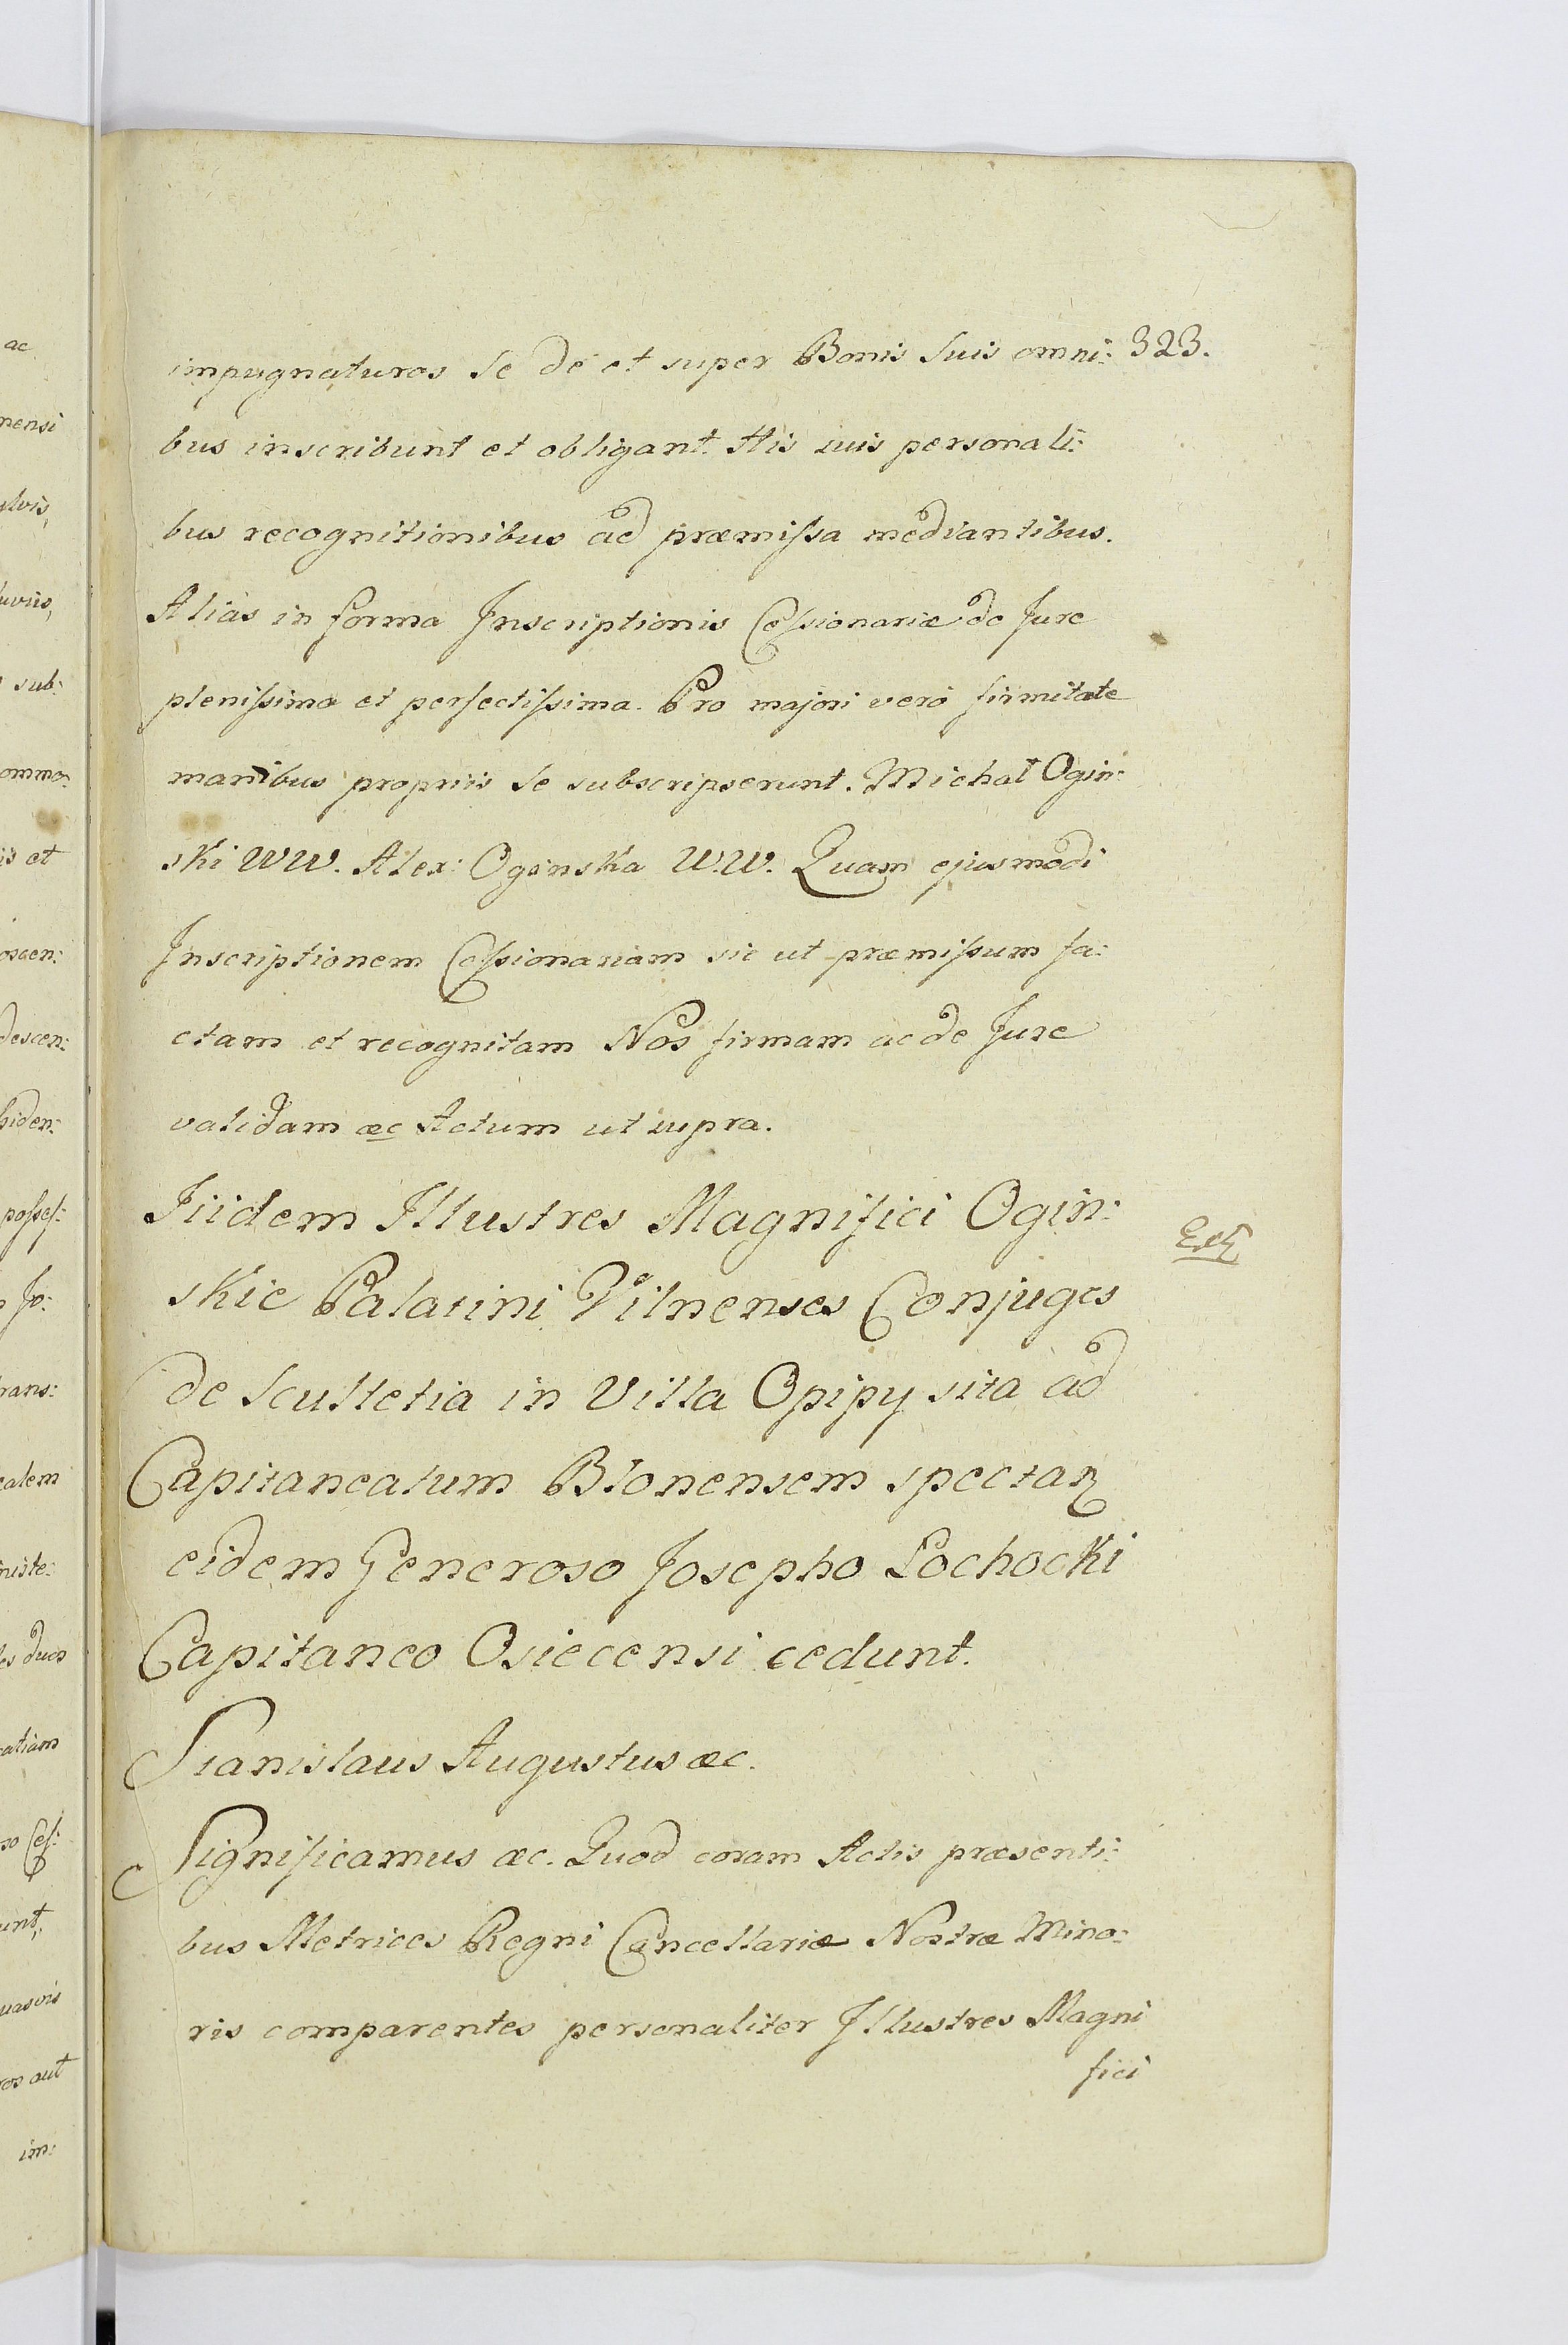 323.
impugnaturos se de et super Bonis suis omni:
bus inscribunt et obligant. His suis personali:
bus recognitionibus ad præmiſsa mediantibus.
Alias in forma Inscriptionis Ceſsionariæ de Jure
pleniſsima et perfectiſsima. Pro majori vero firmitate
manibus propriis se subscripserunt. Michał Ogin:
ski WW. Alex: Oginska W.W. Quam ejusmodi
Inscriptionem Ceſsionariam sic ut præmiſsum fa:
ctam et recognitam Nos firmam ac de Jure
validam æc Actum ut supra.
Iiidem Illustres Magnifici Ogin:
skie Palatini Vilnenses Conjuges
de Scultetia in Villa Opipy sita ad
Capitaneatum Blonensem spectan
eidem Generoso Josepho Łochocki
Capitaneo Osiecensi cedunt.
Stanislaus Augustus æc.
Significamus æc. Quod coram Actis præsenti:
bus Metrices Regni Cancellariæ Nostræ Mino:
ris comparentes personaliter Illustres Magni
fici
ac
nensi
sub:
is et
descen:
poſseſ:
Jo:
rans:
unt,
im: